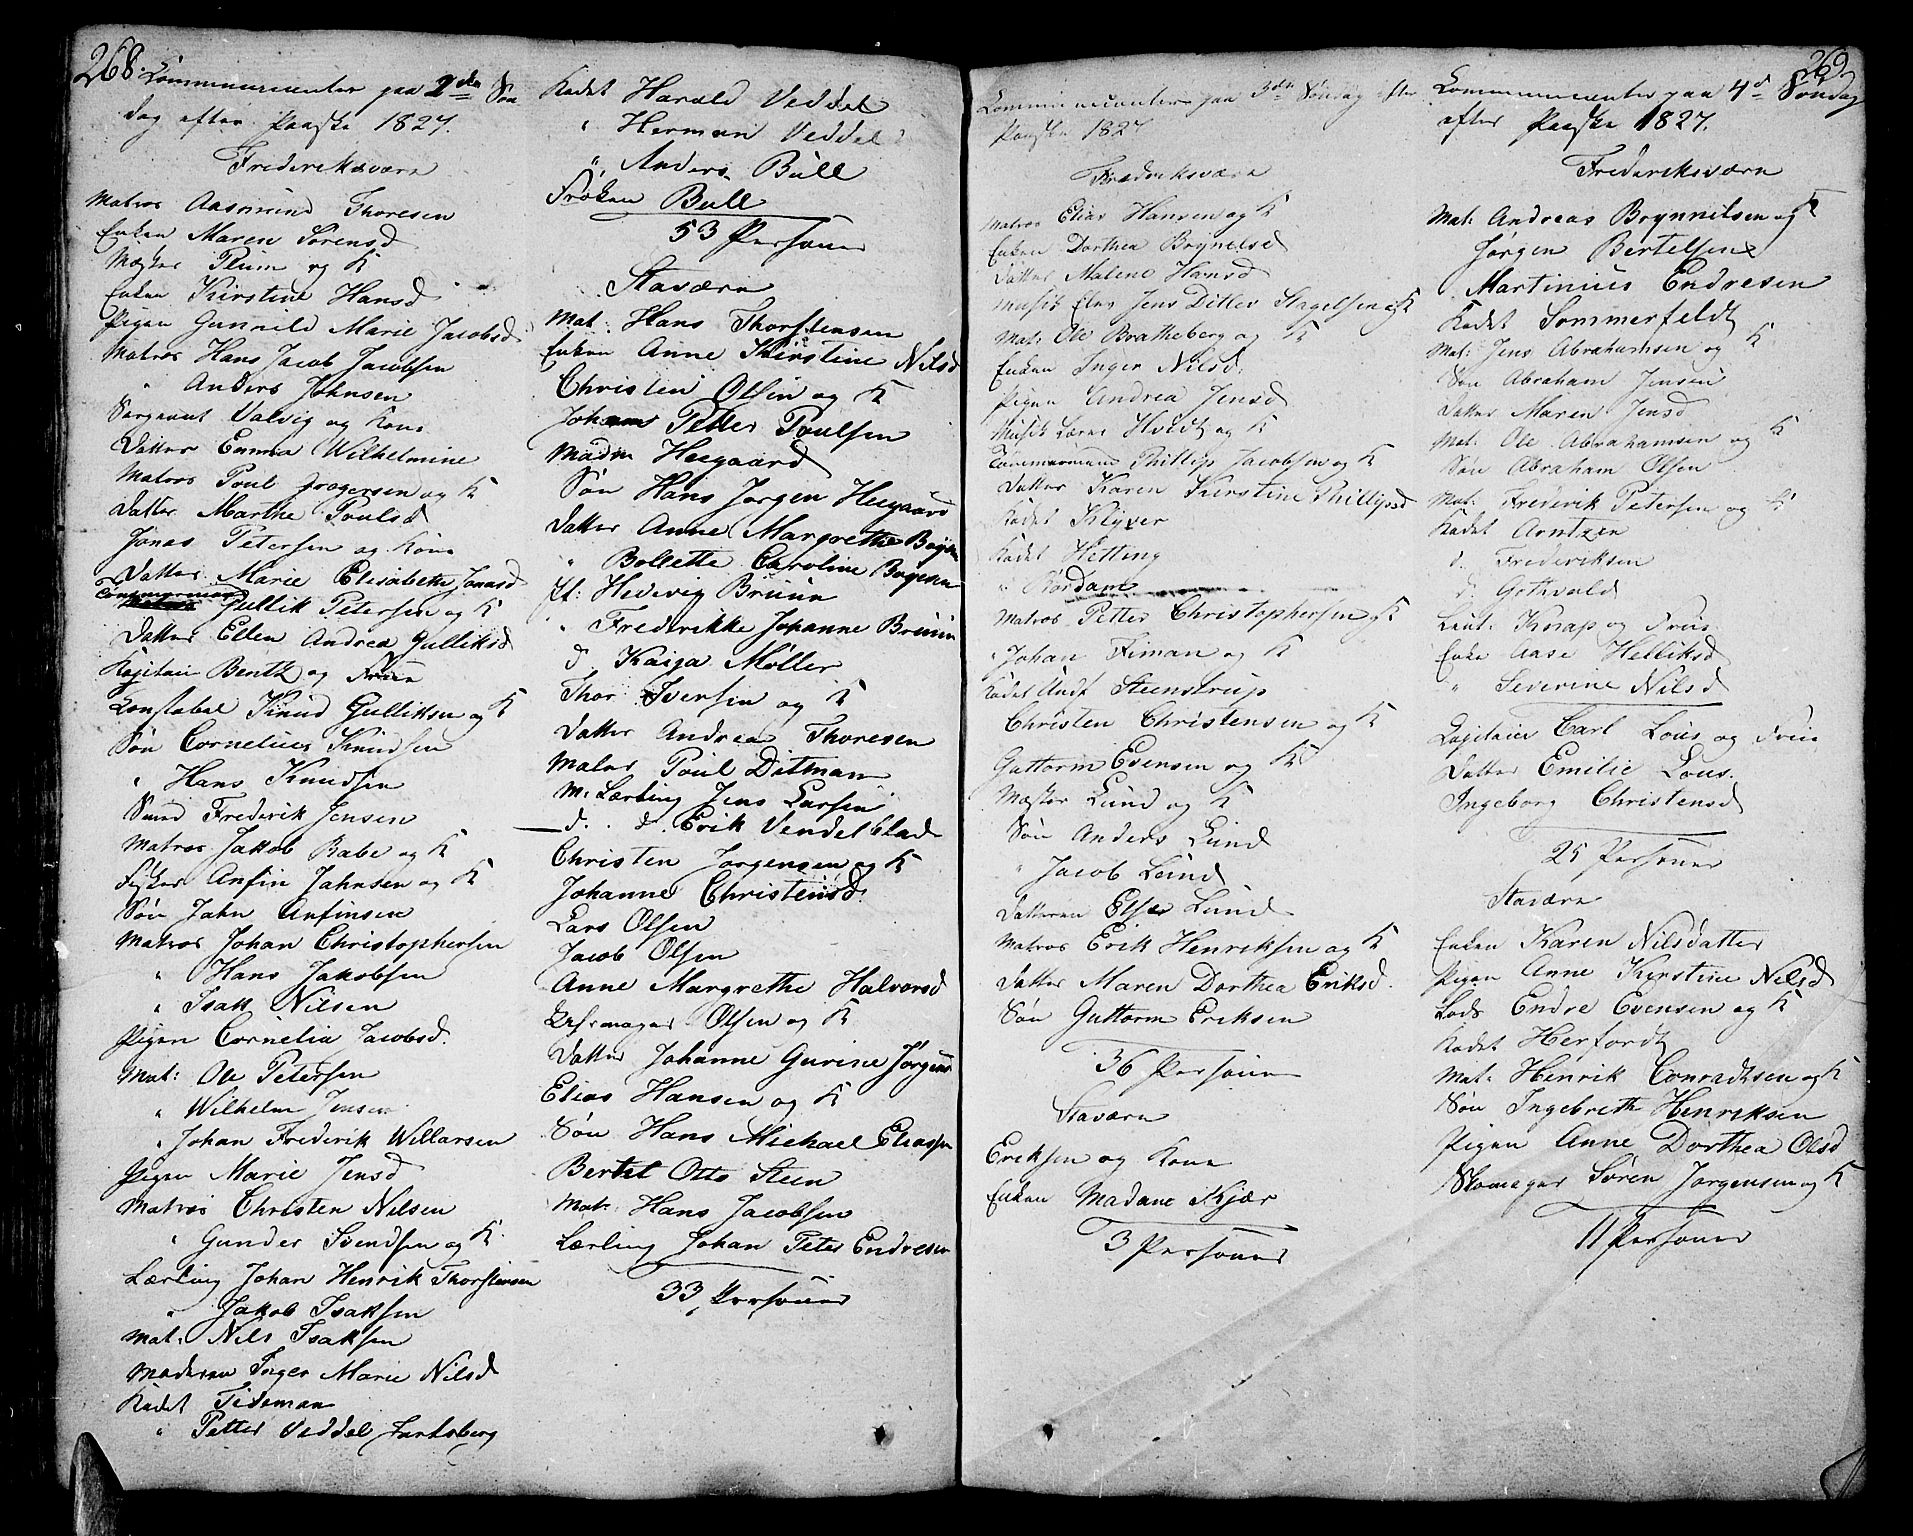 268.
Communicanter paa 2den Søn
dag efter Paaske 1827.
Frederiksværn
Matros Aasmund Thoresen
Enken Maren Sørensd
Mester Plum og K
Enken Kirstine Hansd
Pigen Gunnild Marie Jacobsd
Matros Hans Jacob Jacobsen
" Anders Johnsen
Sergeant Valvig og Kone
Datter Emma Wilhelmine
Matros Poul Jørgersen og K
Datter Marthe Poulsd
Jonas Petersen og Kone
Datter Marie Elisabethe Jonasd
Tømmermand Gullik Petersen og K
Datter Ellen Andrea Gulliksd
Kapitain Bentz og Frue
Constabel Knud Gulliksen og K
Søn Cornelius Knudsen
" Hans Knudsen
Svend Frederik Jensen
Matros Jakob Rabe og K
Fisker Anfin Jahnsen og K
Søn Jahn Anfinsen
Matros Johan Christophersen
" Hans Jakobsen
" Isak Nilsen
Pigen Cornelia Jacobsd.
Mat: Ole Petersen
" Wilhelm Jensen
" Johan Frederik Willarsen
Pigen Marie Jensd
Matros Christen Nilsen
" Gunder Svendsen og K
Lærling Johan Henrik Thorstensen
" Jakob Isaksen
Mat: Nils Isaksen
Inger Marie Nilsd
Kadet Tideman
" Petter Veddel
Kadet Harald Veddel
" Herman Veddel
" Anders Bull
Frøken Bull
53 Personer
Staværn
Mat: Hans Thorstensen
Enken Anne Kirstine Nilsd
Christen Olsen og K
Johan Petter Poulsen
Madm Heegaard
Søn Hans Jørgen Heegaard
Datter Anne Margrethe Boysen
" Bollette Caroline Boysen
Jf: Hedevig Bruun
" Frederikke Johanne Bruun
d Kaiga Møller
Thor Iversen og K
Datter Andrea Thoresen
Maler Poul Ditman
M: Lærling Jens Larsen
d. d. Erik Vendelblad
Christen Jørgensen og K
Johanne Christensd.
Lars Olsen
Jacob Olsen
Anne Margrethe Halvorsd
Olsen og K
Datter Johanne Gurine Jørgens
Elias Hansen og K
Søn Hans Michael Eliassen
Bertel Otto Steen
Mat: Hans Jacobsen
Lærling Johan Peter Endresen
33 Personer
269
Communicanter paa 3die Søndag efter
Paaske 1827
Fredriksværn
Matros Elias Hansen og K
Enken Dorthea Brynelsd
Datter Malene Hansd
Musik Elev Jens Ditlev Stagelsen og K
Mat: Ole Bratheberg og K
Enken Inger Nilsd.
Pigen Andrea Jensd
Musik Lærer Hvidt og K
Tømmermand Phillip Jacobsen og K
Datter Karen Kirstine Phillipsd
Kadet Klyver
Kadet Hetting
" Rørdam
Matros Petter Christophersen og K
" Johan Fiman og K
Kadet Undf Steenstrup
Christen Christensen og K
Guttorm Evensen og K
Mester Lund og K
Søn Anders Lund
" Jacob Lund
Datteren Else Lund
Matros Erik Henriksen og K
Datter Maren Dorthea Eriksd.
Søn Guttorm Eriksen
36 Personer
Staværn
Eriksen og Kone
Enken Madame Kjær
3 Personer
Communicanter paa 4d Søndag
efter Paaske 1827.
Frederiksværn
Mat: Andreas Brynnilsen og K
Jørgen Bertelsen
Martinius Endresen
Kadet Sommerfeldt
Mat: Jens Abrahamsen og K
Søn Abraham Jensen
Datter Maren Jensd
Mat: Ole Abrahamsen og K
Søn Abraham Olsen
Mat: Frederik Petersen og K
Kadet Arntzen
d. Frederiksen
d. Gothvald
Lieut: Knap og Frue
Enke Aase Helliksd
" Severine Nilsd
Capitain Carl Lous og Frue
Datter Emilie Lous.
Ingeborg Christensd
25 Personer
Staværn
Enken Karen Nilsdatter
Pigen Anne Kirstine Nilsd
Lods Endre Evensen og K
Kadet Herfordt
Mat: Henrik Conradtsen og K
Søn Ingebreth Henriksen
Pigen Anne Dorthea Olsd
Skomager Søren Jørgensen og K
11 Personer